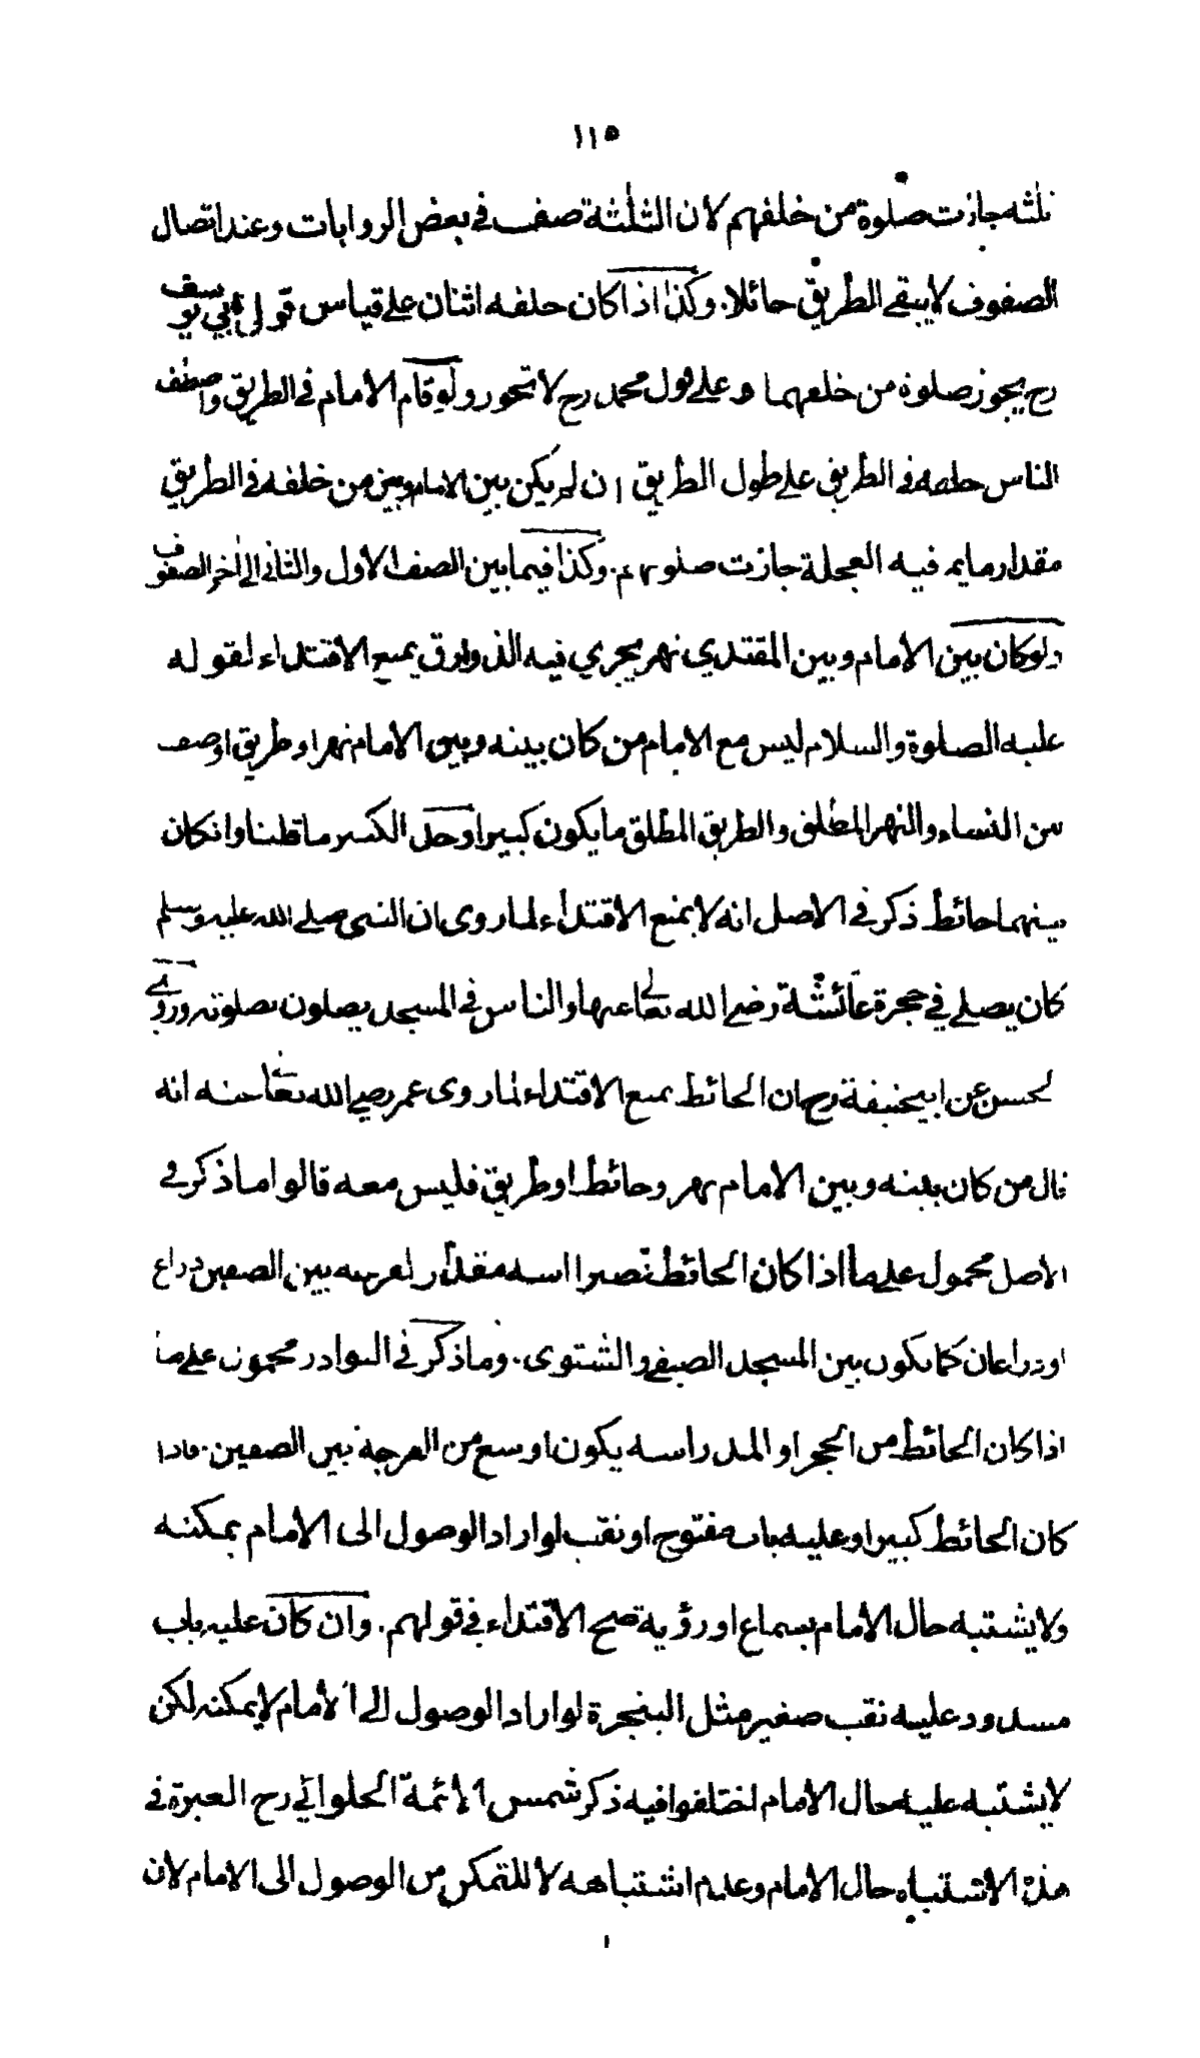 ١١٥
ثلثه جازت صلوة من خلفهم لان الثلثة صف في بعض الروايات وعند اتصال
الصفوف لا يبقى الطريق حائلا. وكذا اذا كان خلفه اثنان على قياس قول ابي يوسف
رح يجوز صلوة من خلفهما وعلى قول محمد رح لا تجوز ولو قام الامام في الطريق واصطف
الناس خلفه في الطريق على طول الطريق ان لم يكن بين الامام وبين من خلفه في الطريق
مقدار ما يمر فيه العجلة جازت صلوتهم. وكذا فيما بين الصف الاول والثاني الى اخر الصفوف
ولو كان بين الامام وبين المقتدي نهر يجري فيه الذوارق يمنع الاقتداء لقوله
عليه الصلوة والسلام ليس مع الامام من كان بينه وبين الامام نهر او طريق او صف
من النساء والنهر المطلق والطريق المطلق ما يكون كبيرا وحد الكبير ما قلنا وان كان
بينهما حائط ذكر في الاصل انه لا يمنع الاقتداء لما روي ان النبي صلى الله عليه وسلم
كان يصلي في حجرة عائشة رضي الله تعالى عنها والناس في المسجد يصلون بصلوته وروى
لحسن عن ابيحنيفة رح ان الحائط يمنع الاقتداء لما روى عمر رضي الله تعالى عنه انه
قال من كان بينه وبين الامام نهر وحائط او طريق فليس معه قالوا ما ذكر في
الاصل محمول على ما اذا كان الحائط قصيرا اسه مقدار الفرجه بين الصفين ذراع
او ذراعان كما يكون بين المسجد الصيفي والشتوى. وما ذكر في النوادر محمول على ما
اذا كان الحائط من الحجر او المدر اسه يكون اوسع من الفرجة بين الصفين. فاذا
كان الحائط كبيرا وعليه باب مفتوح او نقب لو اراد الوصول الى الامام يمكنه
ولا يشتبه حال الامام بسماع او رؤية صح الاقتداء في قولهم. وان كان عليه باب
مسدود عليه نقب صغير مثل البنجرة لو اراد الوصول الى الامام لا يمكنه لكن
لا يشتبه عليه حال الامام اختلفوا فيه ذكر شمس الائمة الحلواني رح العبرة في
هذه الاشتباه حال الامام وعدم اشتباهه لا للتمكن من الوصول الى الامام لان